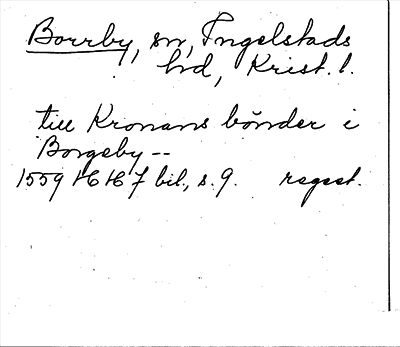 Borrby, sn, Ingelstads
hd, Krist. l.
till Kronans bönder i
Borgeby --
1559 HH 7 bil., s. 9. regest.